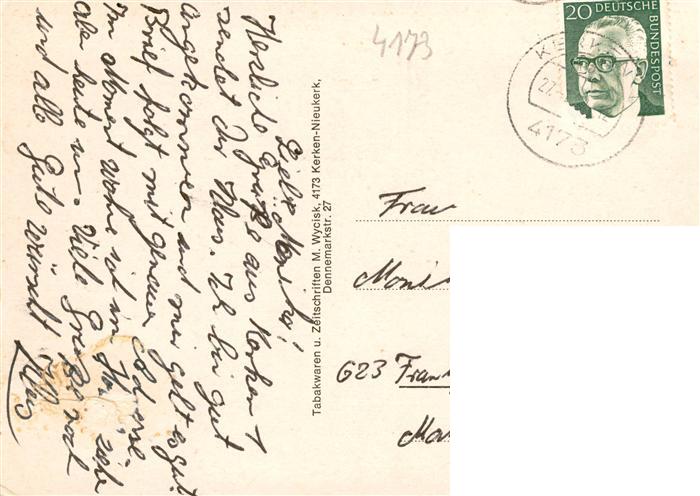 4173
20 DEUTSCHE
BUNDESPOST
KERKEN
4173
Liebe Monika!
Herzliche Grüße aus Kerken 1
sendet Dir Klaus. Ich bin gut
angekommen und mir geht es gut
Brief folgt mit genauer Adresse
Im Moment wohne ich im
aber heute um. Viele Grüße noch
und alles Gute wünscht
Klaus
Tabakwaren u. Zeitschriften M. Wycisk, 4173 Kerken-Nieukerk,
Dennemarkstr. 27
Frau
Moni
623 Fran
Ma